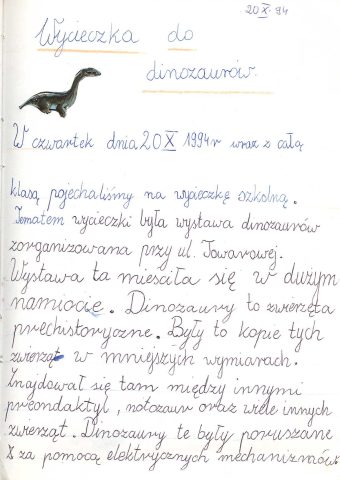 20 X 94
Wycieczka do
dinozaurów.
W czwartek dnia 20 X 1994r wraz z całą
klasą pojechaliśmy na wycieczkę szkolną.
Tematem wycieczki była wystawa dinozaurów
zorganizowana przy ul. Towarowej.
Wystawa ta mieściła się w dużym
namiocie. Dinozaury to zwierzęta
prechistoryczne. Były to kopie tych
zwierząt w mniejszych wymiarach.
Znajdował się tam między innymi
preondaktyl, notozaur oraz wiele innych
zwierząt. Dinozaury te były poruszane
za pomocą elektrycznych mechanizmów